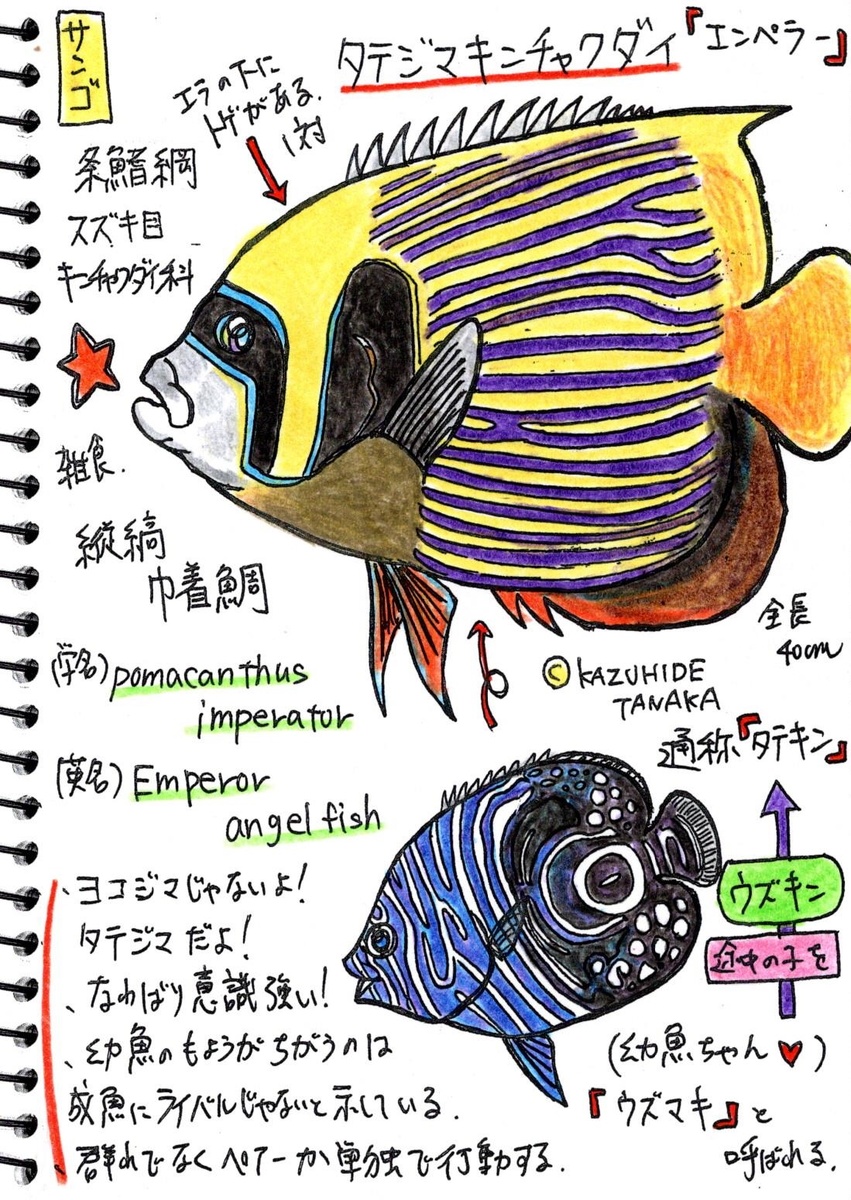 サンゴ
タテジマキンチャクダイ『エンペラー』
エラの下に
トゲがある.
1対
条鰭綱
スズキ目
キンチャクダイ科
雑食.
縦縞
巾着鯛
全長
40cm
(学名) pomacanthus
imperator
© KAZUHIDE
TANAKA
(英名) Emperor
angel fish
通称『タテキン』
ウズキン
途中の子を
、ヨコジマじゃないよ!
タテジマだよ!
、なわばり意識強い!
、幼魚のもようがちがうのは
成魚にライバルじゃないと示している.
、群れでなくペアーか単独で行動する.
(幼魚ちゃん♥)
『ウズマキ』と
呼ばれる.